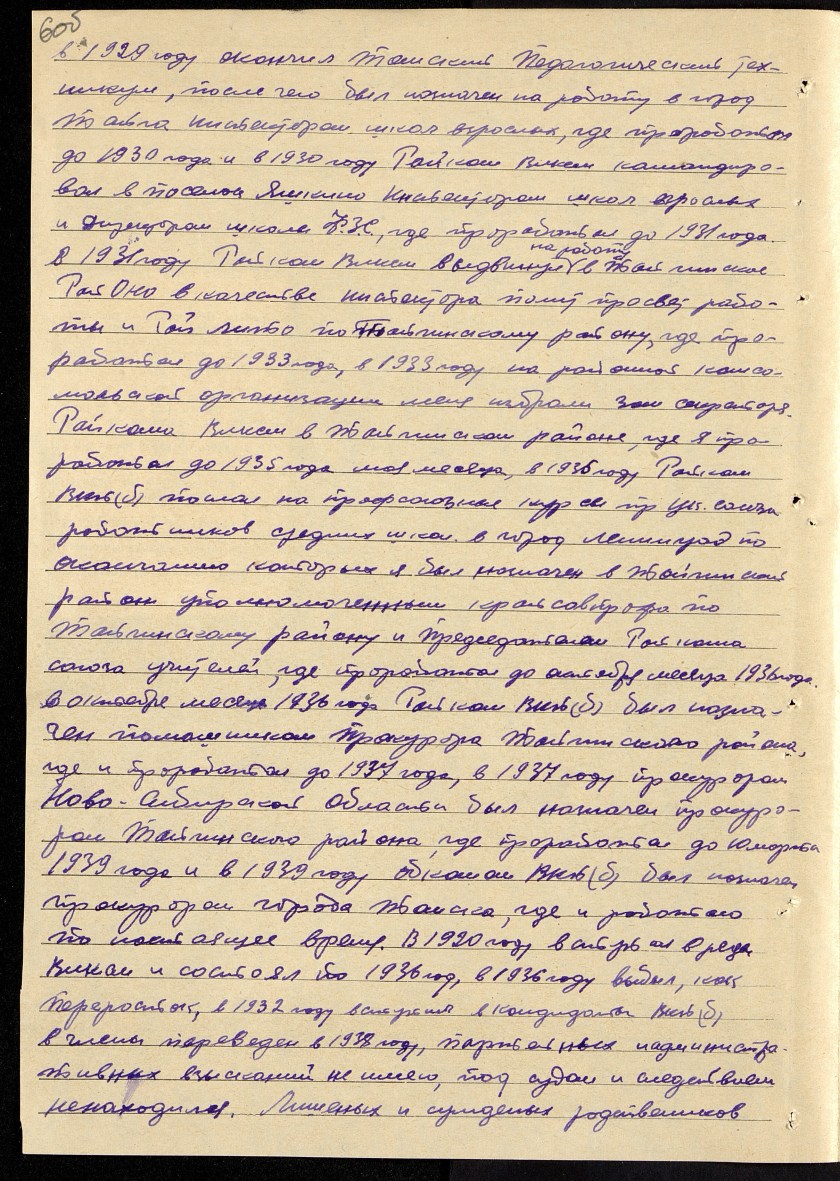 605
в 1929 году окончил Томский Педагогический тех-
никум, после чего был назначен на работу в город
Тайга инспектором школ взрослых, где проработал
до 1930 года и в 1930 году Райком Влксм командиро-
вал в поселок Яшкино Инспектором школ взрослых
и директором школы Ф.З.С, где проработал до 1931 года.
В 1931 году Райком Влксм выдвинул на работу в Тайгинское
РайОНО в качестве инспектора полит просвет рабо-
ты и Рай лито по Тайгинскому району, где про-
работал до 1933 года, в 1933 году на районной комсо-
мольской организации меня избрали зам секретаря
Райкома Влксм в Тайгинском районе, где я про-
работал до 1935 года мая месяца, в 1935 году Райком
Вкп(б) послал на профсоюзные курсы пр Цк. союза
работников средних школ. в город Ленинград по
окончанию которых я был назначен в Тайгинский
район уполномоченным крайсовпрофа по
Тайгинскому району и Председателем Райкома
союза учителей, где проработал до октября месяца 1936 года.
в октябре месяце 1936 года Райком Вкп(б) был назна-
чен помошником Прокурора Тайгинского района,
где и проработал до 1937 года, в 1937 году прокурором
Ново-Сибирской Области был назначен прокуро-
ром Тайгинского района, где проработал до 10 марта
1939 года и в 1939 году Обкомом Вкп(б) был назначен
прокурором города Томска, где и работаю
по настоящее время. В 1920 году вступил в ряды
Влксм и состоял по 1936 год, в 1936 году выбыл, как
переросток, в 1932 году вступил в кандидаты Вкп(б)
в члены переведен в 1938 году, партийных и администра-
тивных взысканий не имею, под судом и следствием
ненаходился. Лишеных и сужденых родственников